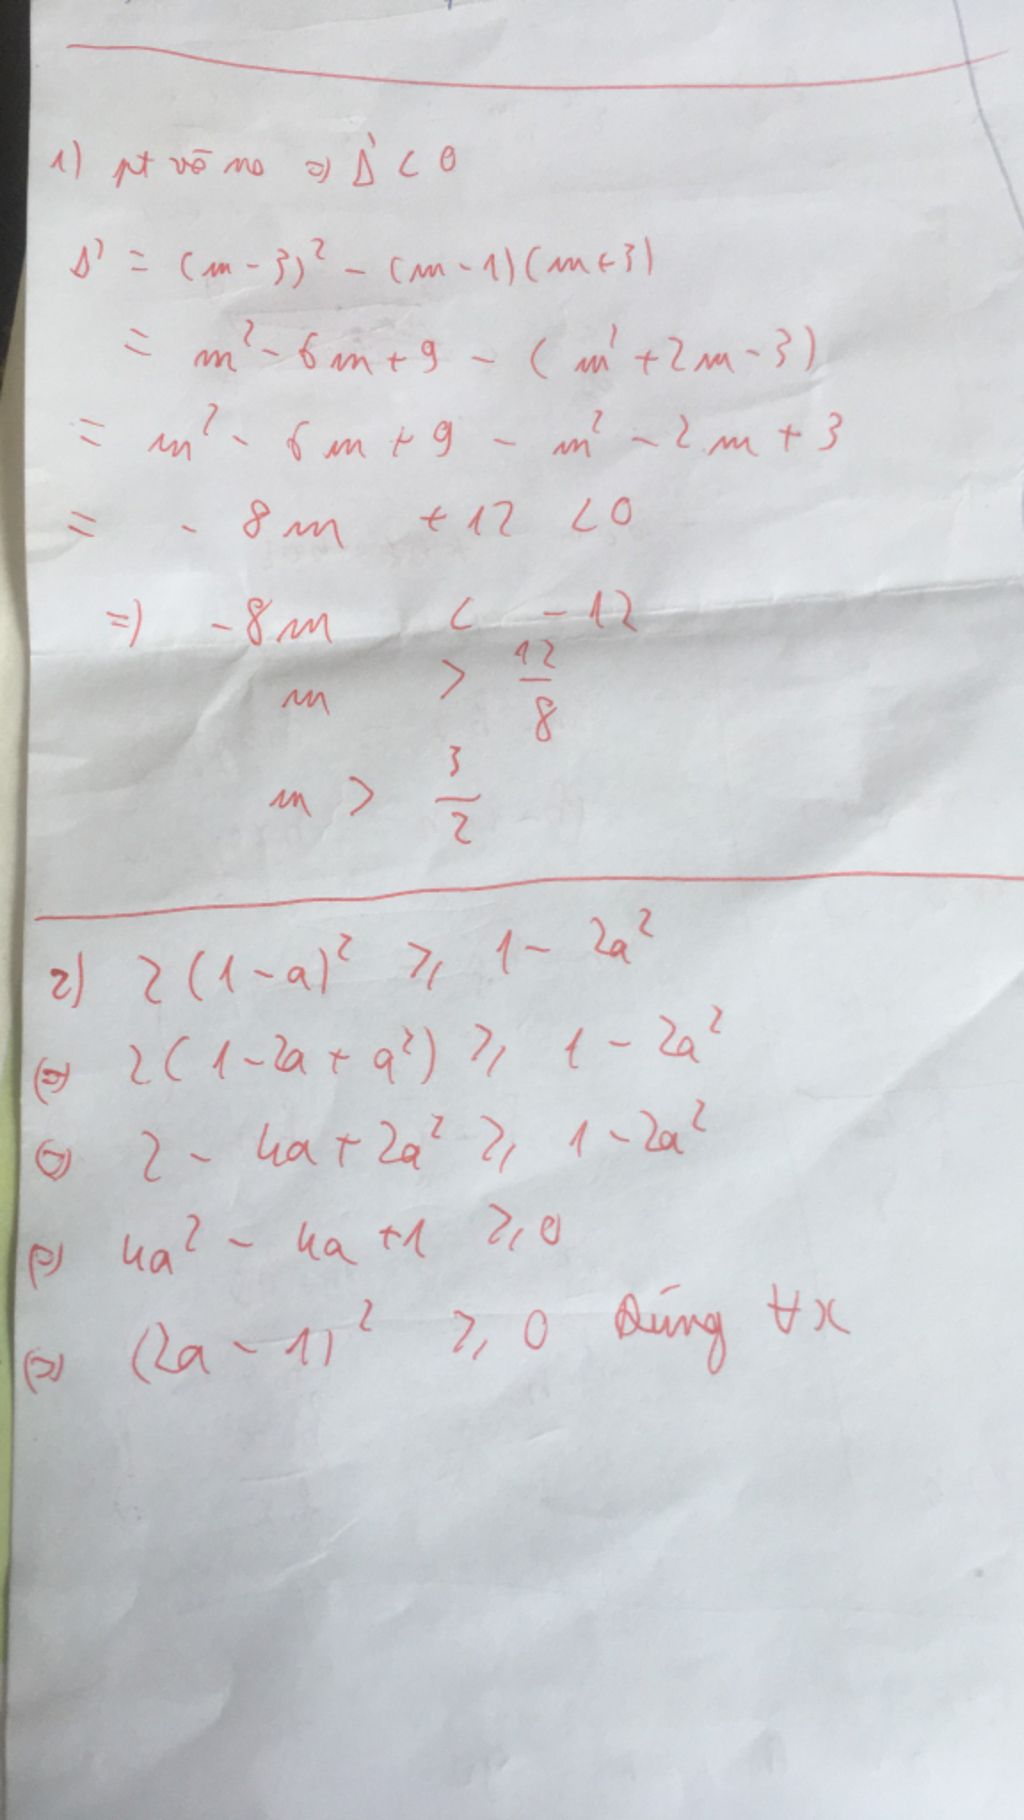 1) pt vô no => Δ' < 0
Δ' = (m - 3)² - (m - 1)(m + 3)
= m² - 6m + 9 - (m² + 2m - 3)
= m² - 6m + 9 - m² - 2m + 3
= - 8m + 12 < 0
=> -8m < -12
m > 12/8
m > 3/2
2) 2(1 - a)² ≥ 1 - 2a²
(=) 2(1 - 2a + a²) ≥ 1 - 2a²
(=) 2 - 4a + 2a² ≥ 1 - 2a²
(=) 4a² - 4a + 1 ≥ 0
(=) (2a - 1)² ≥ 0 Đúng ∀x